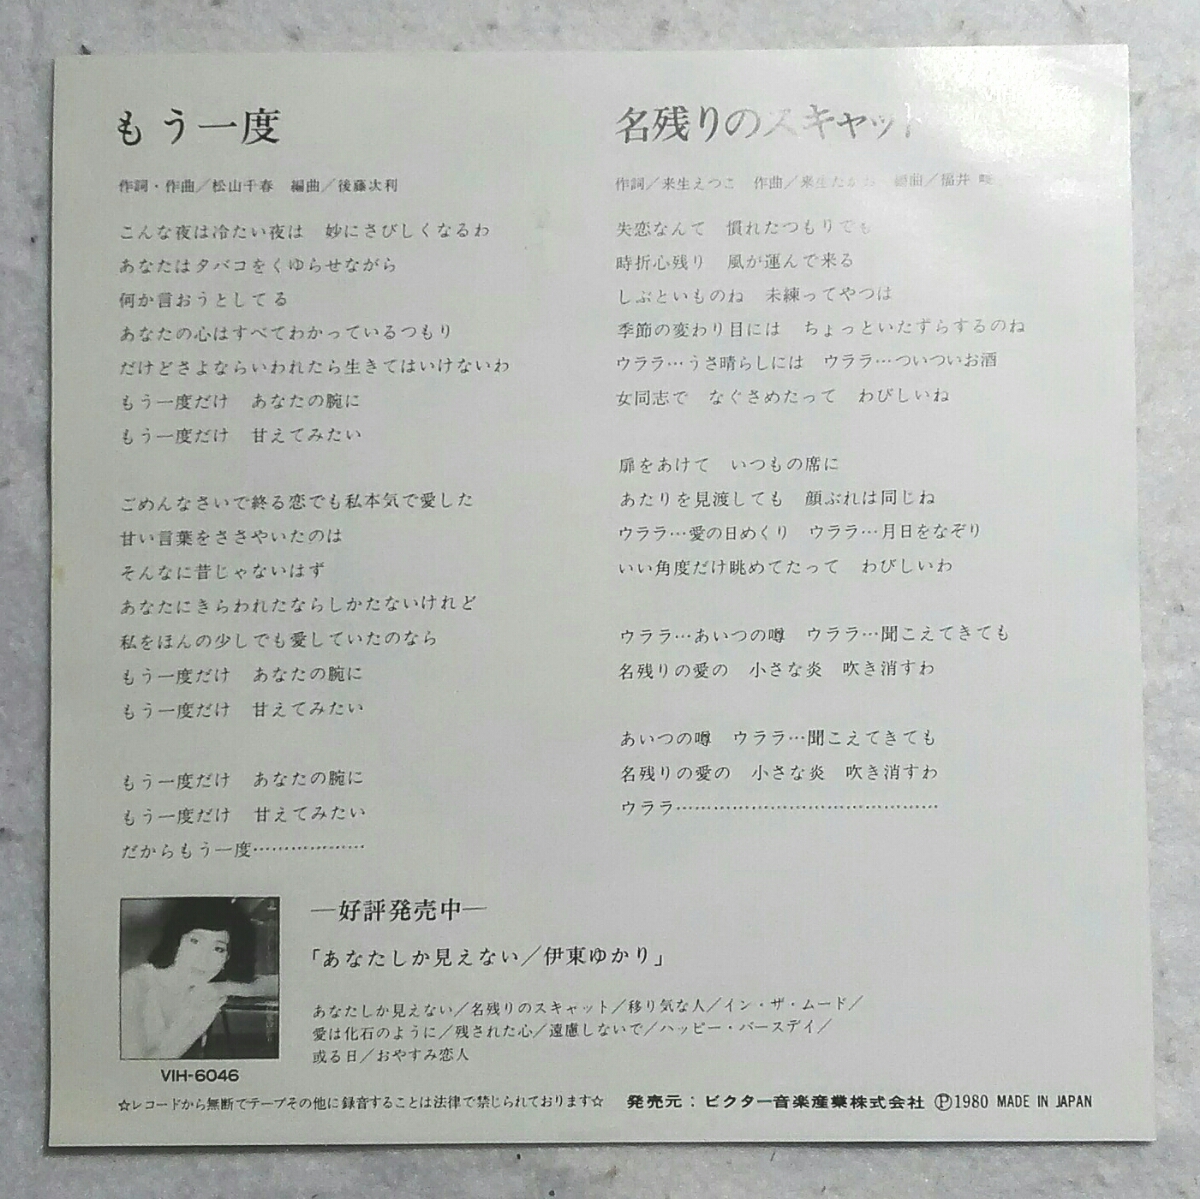 もう一度
作詞・作曲／松山千春　編曲／後藤次利
こんな夜は冷たい夜は　妙にさびしくなるわ
あなたはタバコをくゆらせながら
何か言おうとしてる
あなたの心はすべてわかっているつもり
だけどさよならいわれたら生きてはいけないわ
もう一度だけ　あなたの腕に
もう一度だけ　甘えてみたい
ごめんなさいで終る恋でも私本気で愛した
甘い言葉をささやいたのは
そんなに昔じゃないはず
あなたにきらわれたならしかたないけれど
私をほんの少しでも愛していたのなら
もう一度だけ　あなたの腕に
もう一度だけ　甘えてみたい
もう一度だけ　あなたの腕に
もう一度だけ　甘えてみたい
だからもう一度………………
名残りのスキャット
作詞／来生えつこ　作曲／来生たかお　編曲／福井
失恋なんて　慣れたつもりでも
時折心残り　風が運んで来る
しぶといものね　未練ってやつは
季節の変わり目には　ちょっといたずらするのね
ウララ…うさ晴らしには　ウララ…ついついお酒
女同志で　なぐさめたって　わびしいね
扉をあけて　いつもの席に
あたりを見渡しても　顔ぶれは同じね
ウララ…愛の日めくり　ウララ…月日をなぞり
いい角度だけ眺めてたって　わびしいわ
ウララ…あいつの噂　ウララ…聞こえてきても
名残りの愛の　小さな炎　吹き消すわ
あいつの噂　ウララ…聞こえてきても
名残りの愛の　小さな炎　吹き消すわ
ウララ……………………………………
―好評発売中―
「あなたしか見えない／伊東ゆかり」
あなたしか見えない／名残りのスキャット／移り気な人／イン・ザ・ムード／
愛は化石のように／残された心／遠慮しないで／ハッピー・バースデイ／
或る日／おやすみ恋人
VIH-6046
☆レコードから無断でテープその他に録音することは法律で禁じられております☆　発売元：ビクター音楽産業株式会社 Ⓟ1980 MADE IN JAPAN